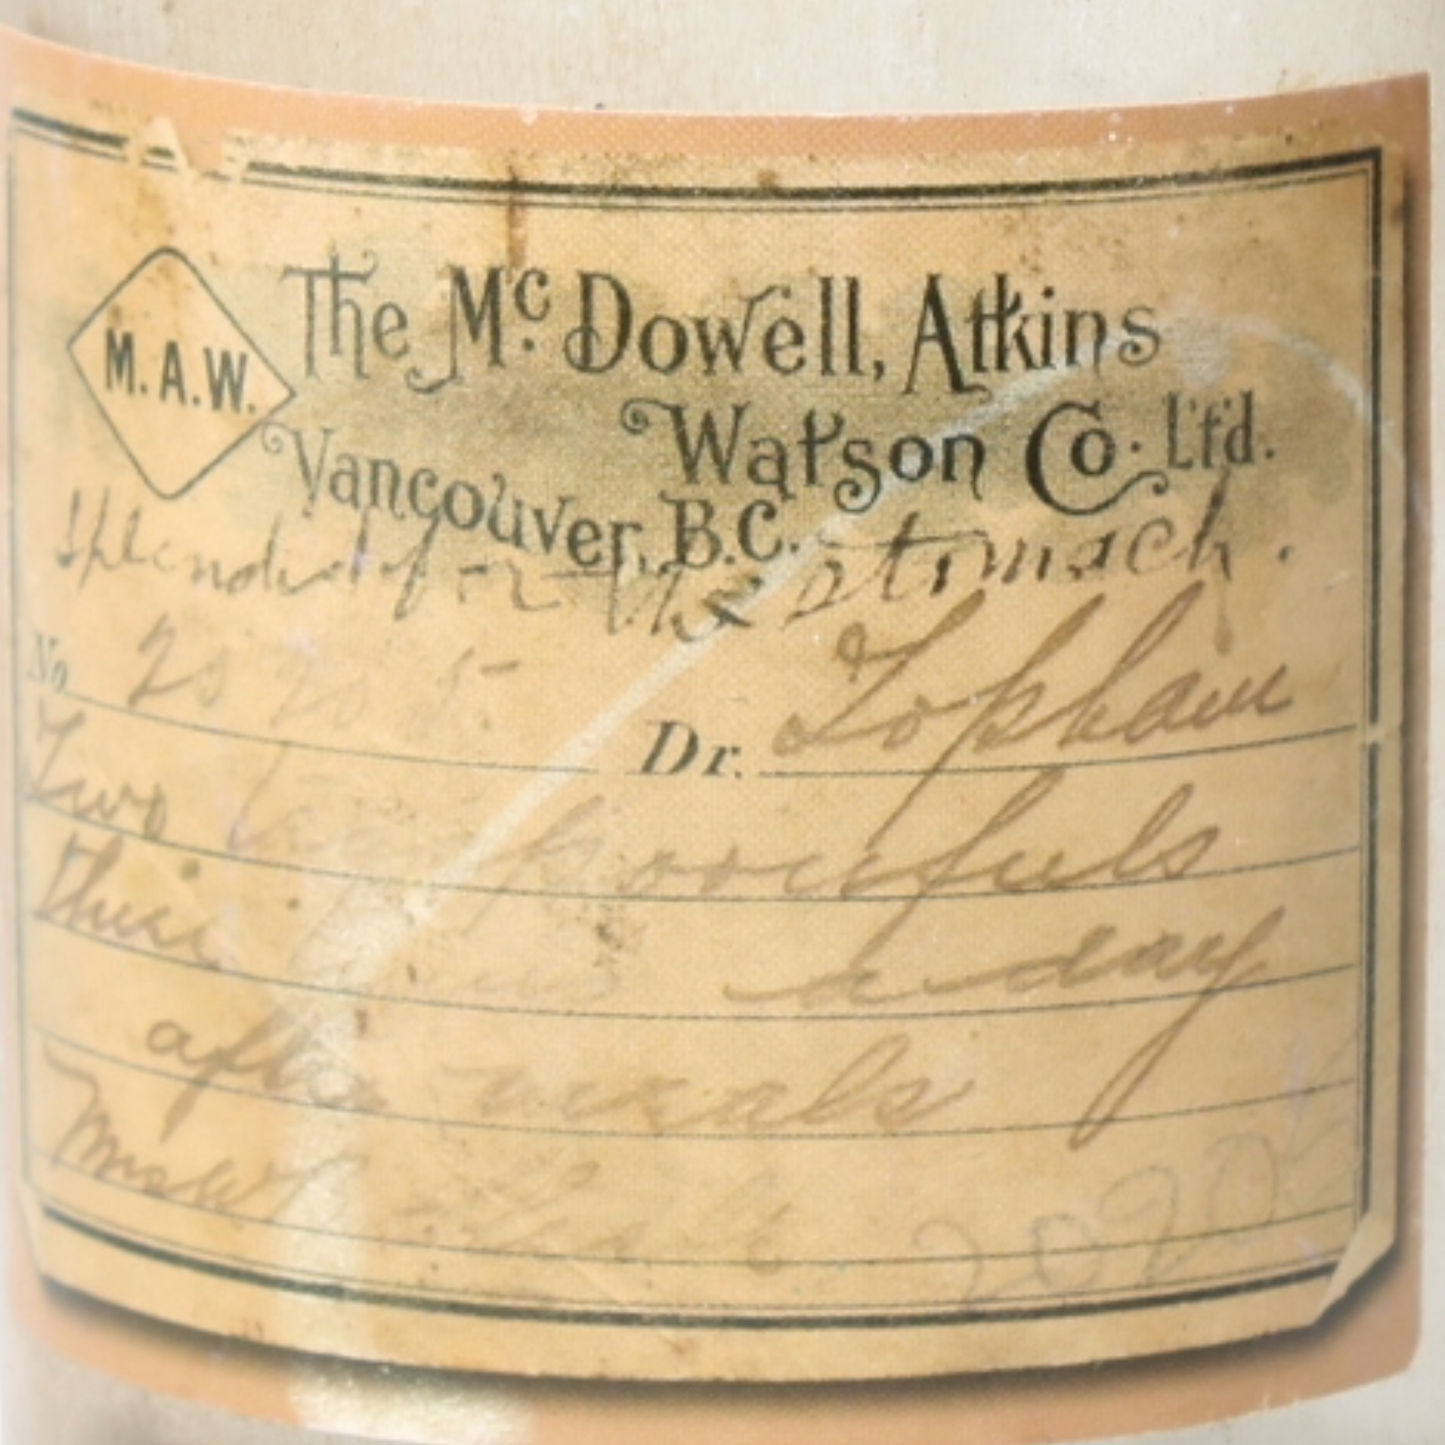 M.A.W.
The Mc. Dowell, Atkins
Watson Co. Ltd.
Vancouver, B.C.
splendid for the stomach.
No
Dr. Topham
Two teaspoonfuls
three times a day
after meals